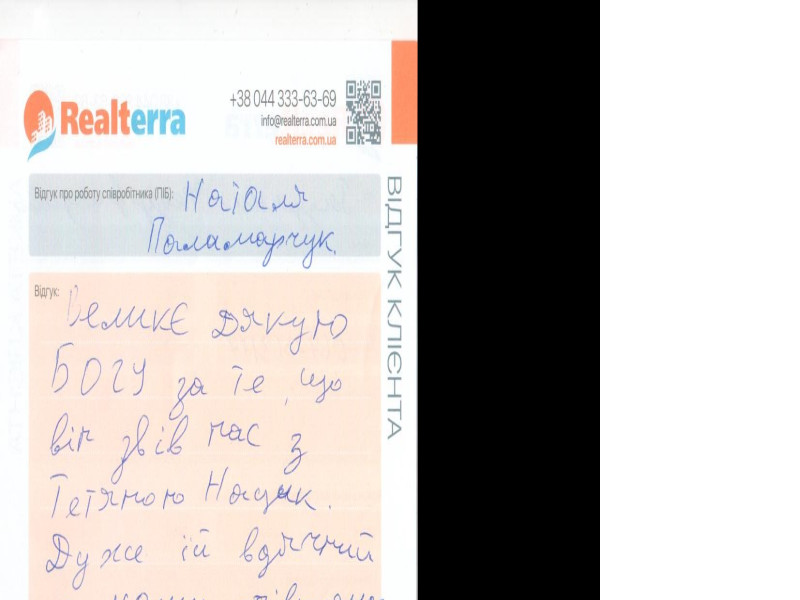 Realterra
+38 044 333-63-69
info@realterra.com.ua
realterra.com.ua
ВІДГУК КЛІЄНТА
Відгук про роботу співробітника (ПІБ): Наталя
Паламарчук.
Відгук:
Великє дякую
БОГУ за те, що
він звів нас з
Тетяною
Дуже їй вдячний